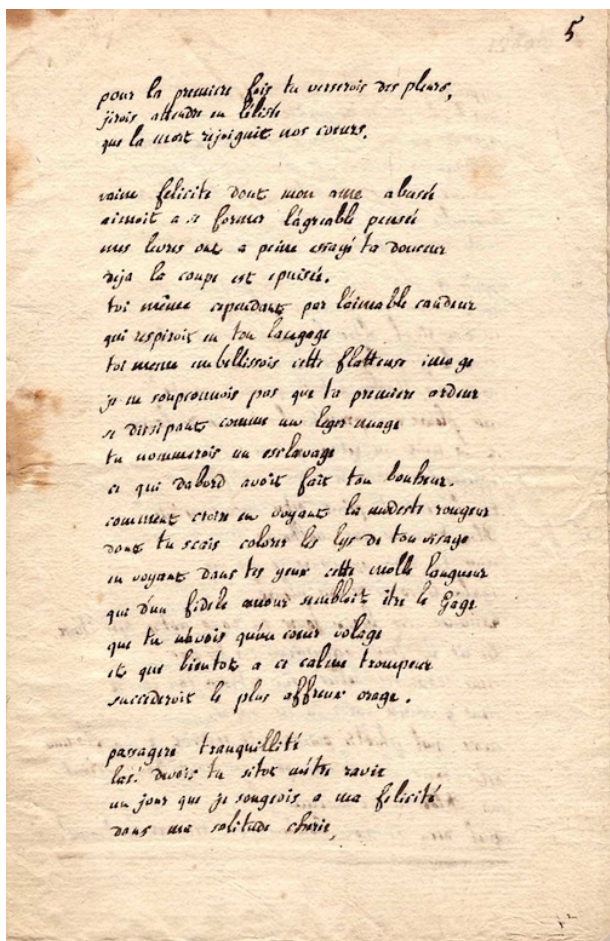 5
pour la premiere fois tu verserois des pleurs,
jirois attendre en l'elisée
que la mort rejoignit nos coeurs.
vaine felicite dont mon ame abusée
aimoit a se former l'agreable pensée
mes levres ont a peine essayé ta douceur
deja la coupe est epuisée.
toi même cependant par l'aimable candeur
qui respiroit en ton langage
toi meme embellissois cette flatteuse image
je ne soupconnois pas que ta premiere ardeur
se dissipant comme un leger nuage
tu nommerois un esclavage
ce qui dabord avoit fait ton bonheur.
comment croire en voyant la modeste rougeur
dont tu scais colorer les lys de ton visage
en voyant dans tes yeux cette molle langueur
qui d'un fidele amour sembloit être le Gage
que tu n'avois qu'un coeur volage
et que bientot a ce calme trompeur
succederoit le plus affreux orage.
passagere tranquillité
las! devois tu sitot m'être ravie
un jour que je songeois a ma felicité
dans ma solitude cherie,